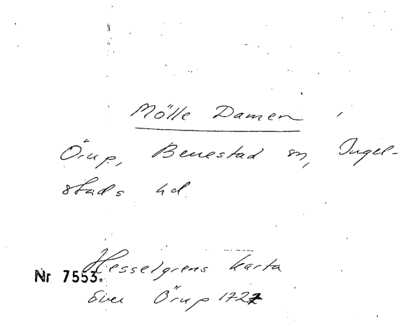 Mölle Damen
Örup, Benestad sn, Ingel-
stads hd
Hesselgrens karta
Nr 7553.
över Örup 1727